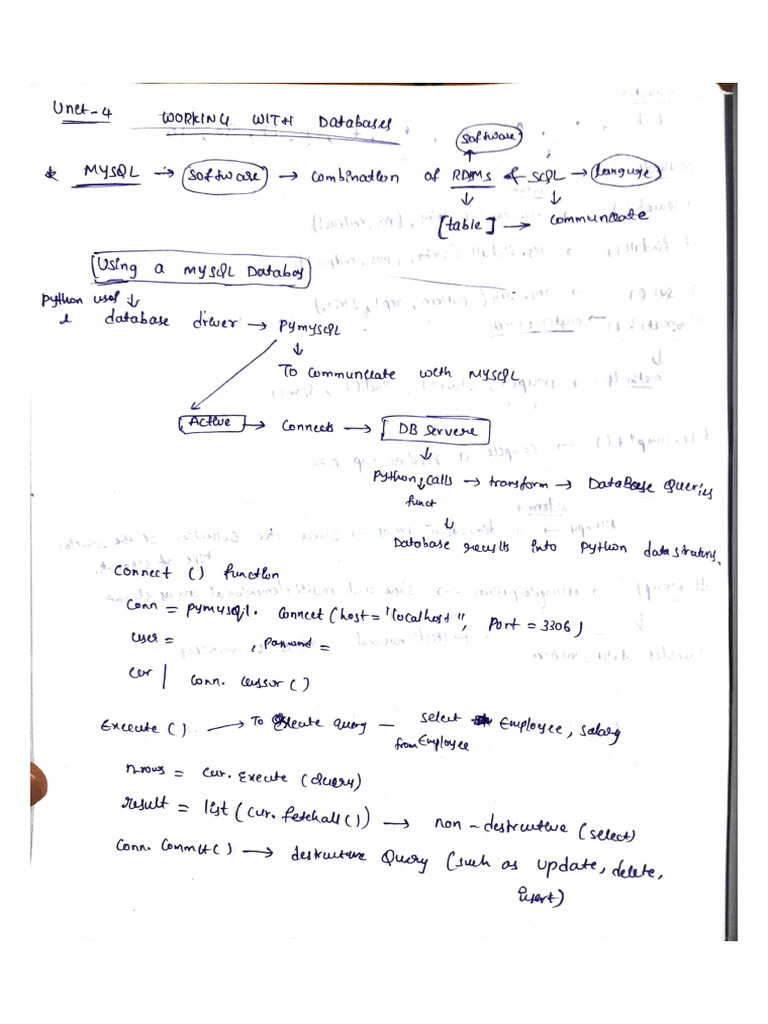 Unit-4
WORKING WITH Databases
software
* MYSQL → software → combination of RDBMS & SQL → language
[table] → communicate
Using a MYSQL Database
python uses ↓
database driver → pymysql
↓
To communicate with MYSQL
Active → Connects → DB Servere
↓
python calls → transform → Database Queries
funct
↓
Database results into python data
connect () function
conn = pymysql. connect (host = "localhost", port = 3306)
user = , password =
cur | conn. cursor ()
Execute () → To Execute query — select Employee, salary
from Employee
nrows = cur. execute (query)
result = list (cur. fetchall ()) → non-destructive (select)
conn. commit () → destructive Query (such as update, delete,
insert)